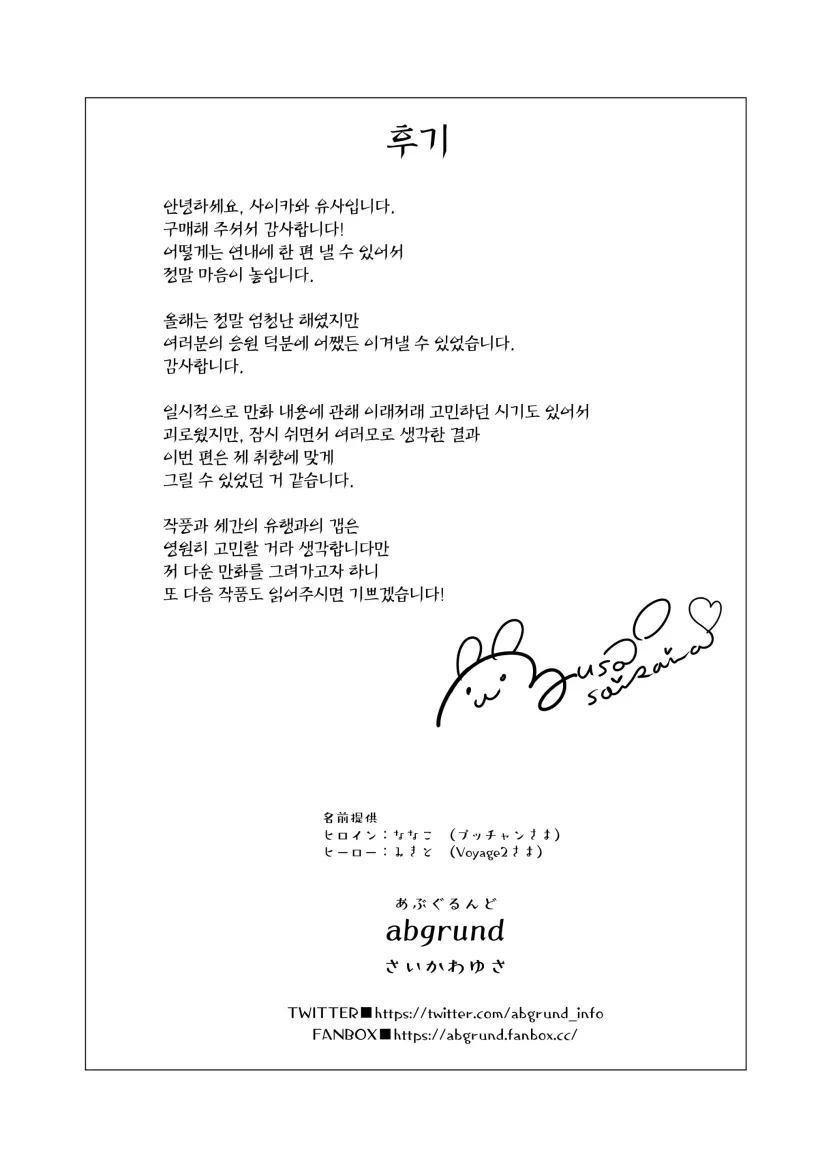 후기
안녕하세요, 사이카와 유사입니다.
구매해 주셔서 감사합니다!
어떻게는 연내에 한 편 낼 수 있어서
정말 마음이 놓입니다.
올해는 정말 엄청난 해였지만
여러분의 응원 덕분에 어쨌든 이겨낼 수 있었습니다.
감사합니다.
일시적으로 만화 내용에 관해 이래저래 고민하던 시기도 있어서
괴로웠지만, 잠시 쉬면서 여러모로 생각한 결과
이번 편은 제 취향에 맞게
그릴 수 있었던 거 같습니다.
작풍과 세간의 유행과의 갭은
영원히 고민할 거라 생각합니다만
저 다운 만화를 그려가고자 하니
또 다음 작품도 읽어주시면 기쁘겠습니다!
名前提供
ヒロイン：ななこ （プッチャンさま）
ヒーロー：みさと （Voyage2さま）
あぶぐるんど
abgrund
さいかわゆさ
TWITTER■https://twitter.com/abgrund_info
FANBOX■https://abgrund.fanbox.cc/